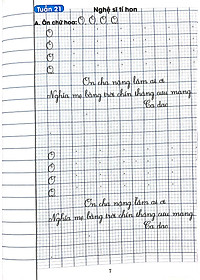 Tuần 21
Nghệ sĩ tí hon
A. Ôn chữ hoa: O O O O
O
O
O
O
Ơn cha nặng lắm ai ơi
Nghĩa mẹ bằng trời chín tháng cưu mang.
Ca dao
O
O
O
O
Ơn cha nặng lắm ai ơi
Nghĩa mẹ bằng trời chín tháng cưu mang.
Ca dao